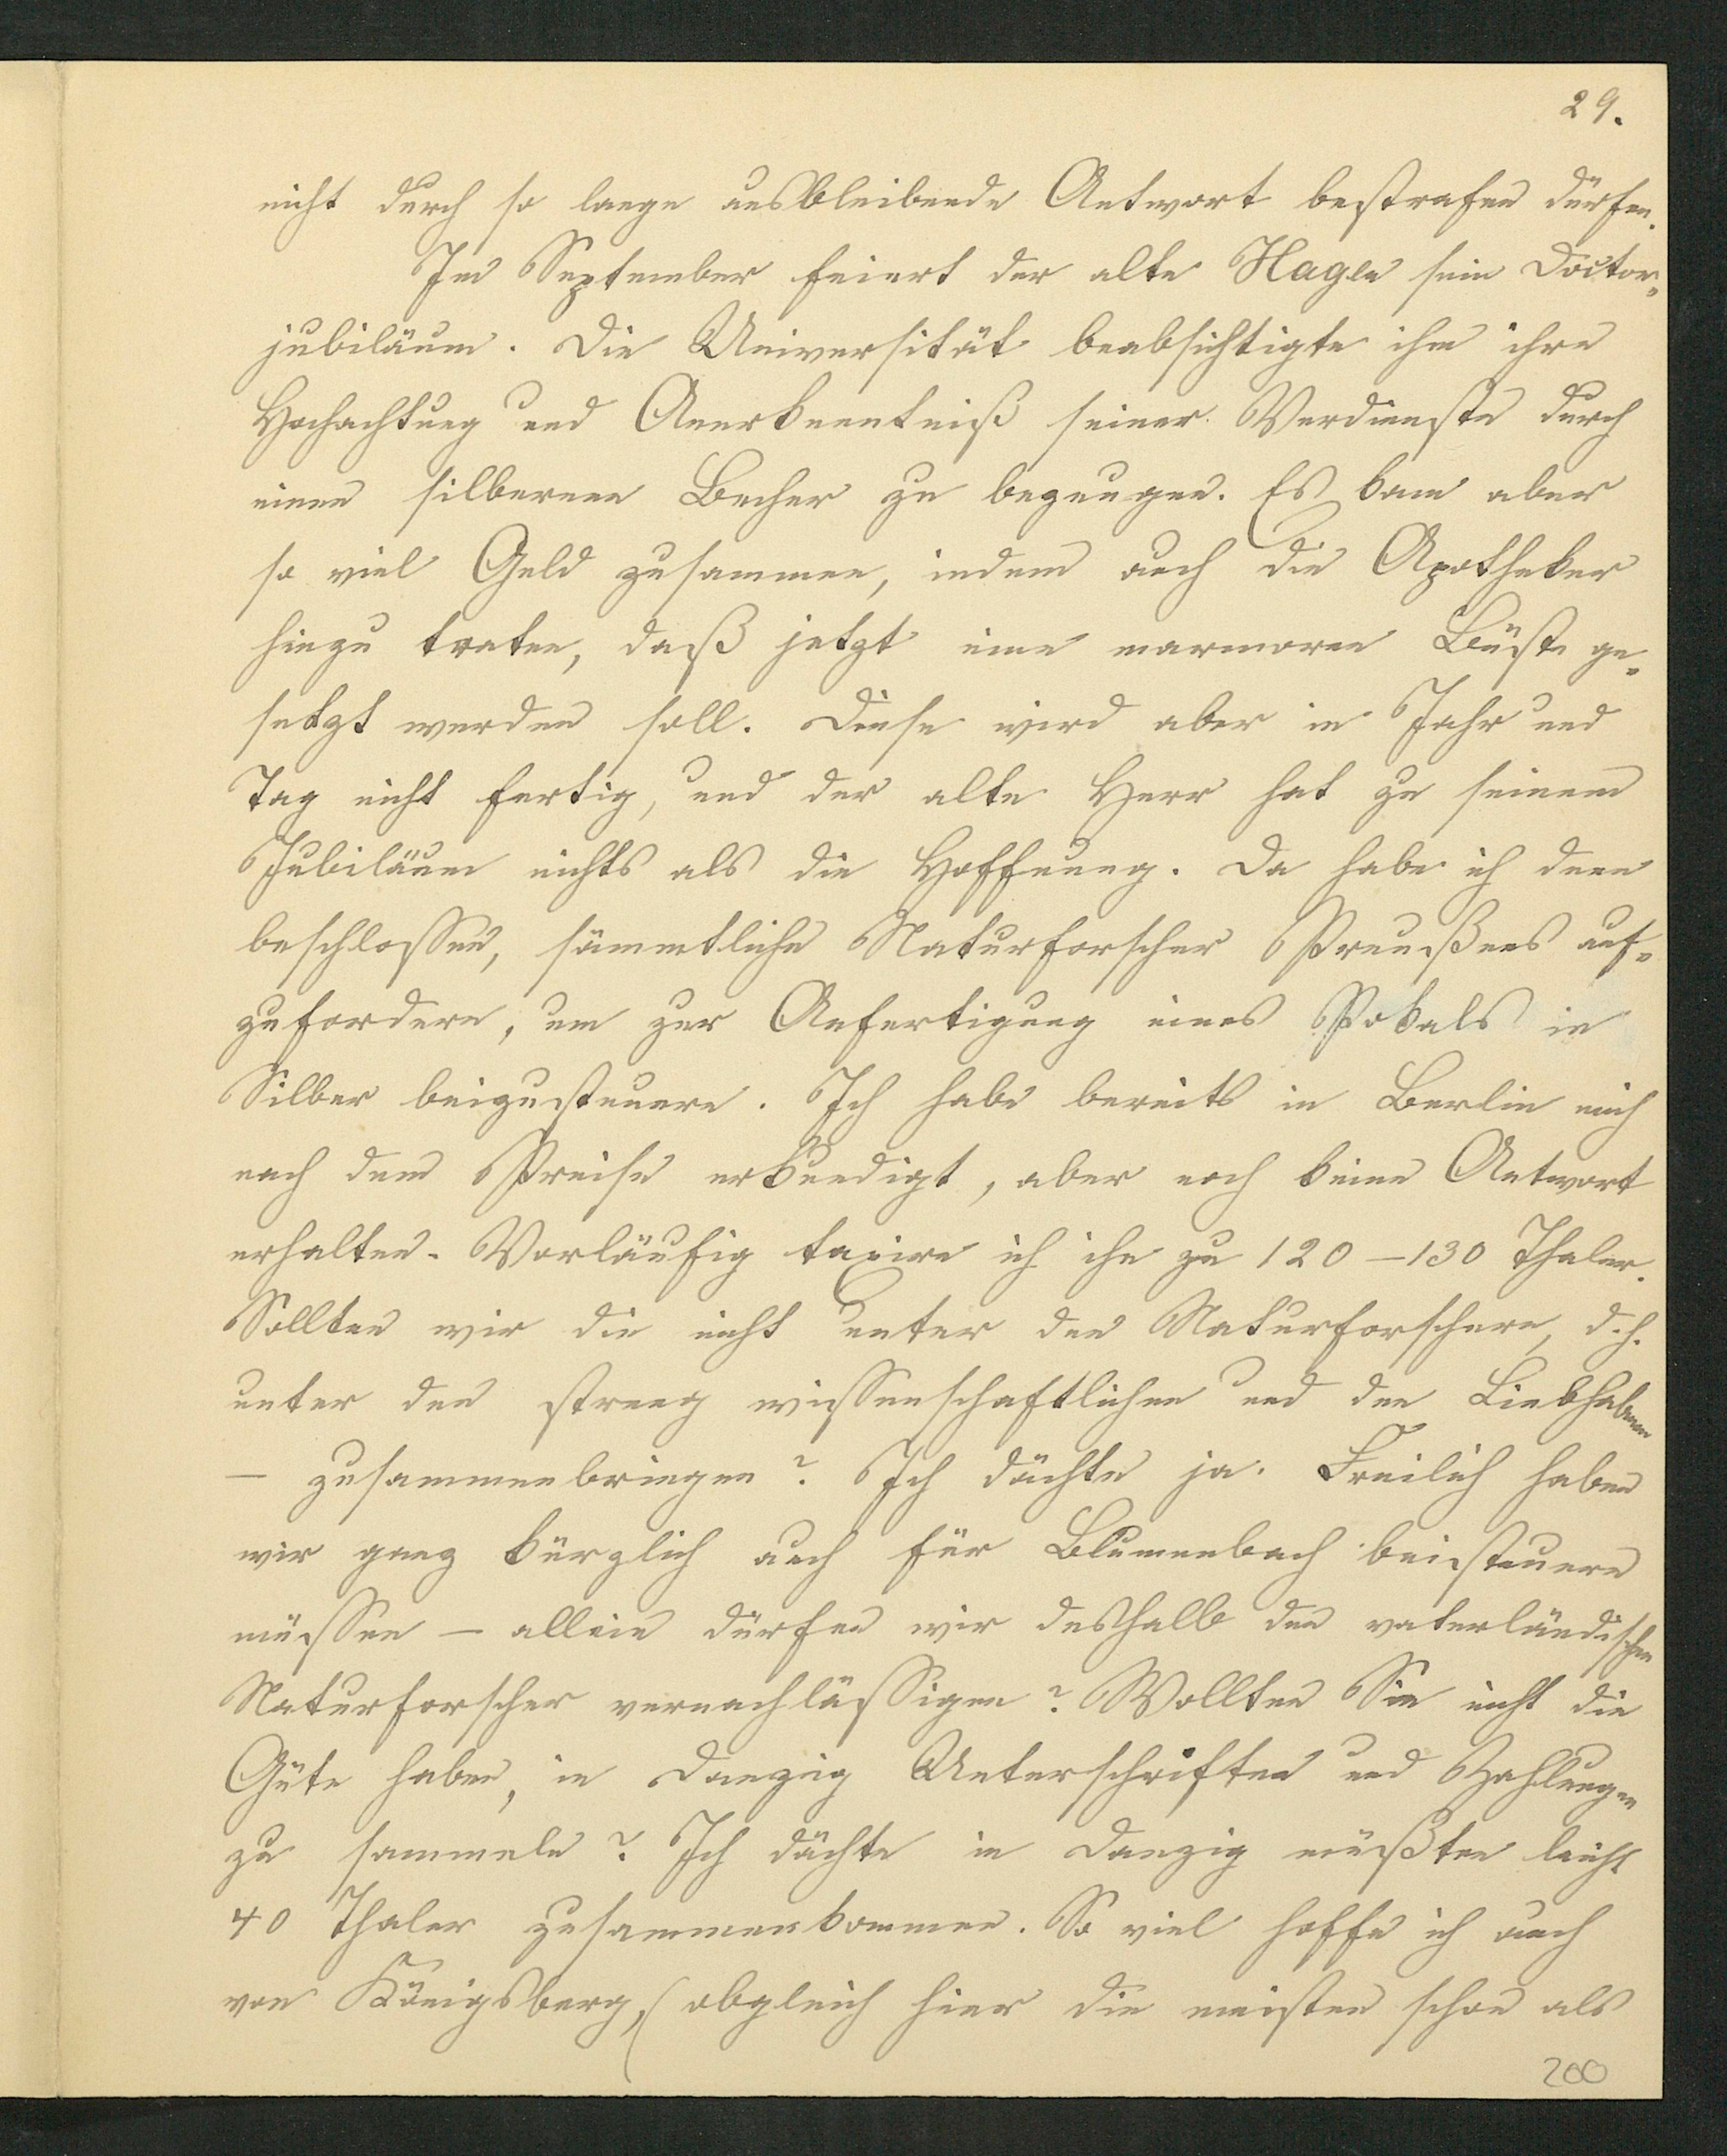 29.
nicht durch so lange ausbleibende Antwort bestrafen dürfen.
Im September feiert der alte Hagen sein Doctor-
jubiläum. Die Universität beabsichtigte ihm ihre
Hochachtung und Anerkenntniß seiner Verdienste durch
einen silbernen Becher zu bezeugen. Es kam aber
so viel Geld zusammen, indem auch die Apotheker
hinzu traten, daß jetzt eine marmorne Büste ge-
setzt werden soll. Diese wird aber in Jahr und
Tag nicht fertig, und der alte Herr hat zu seinem
Jubiläum nichts als die Hoffnung. Da habe ich denn
beschlossen, sämmtliche Naturforscher Preußens auf-
zufordern, um zur Anfertigung eines Pokals in
Silber beizusteuern. Ich habe bereits in Berlin mich
nach dem Preise erkundigt, aber noch keine Antwort
erhalten. Vorläufig taxire ich ihn zu 120 – 130 Thaler.
Sollten wir die nicht unter den Naturforschern, d.h.
unter den streng wissenschaftlichen und den Liebhabern
– zusammenbringen? Ich dächte ja. Freilich haben
wir ganz kürzlich auch für Blumenbach beisteuern
müssen – allein dürfen wir deshalb den vaterländischen
Naturforscher vernachlässigen? Wollten Sie nicht die
Güte haben, in Danzig Unterschriften und Zahlungen
zu sammeln? Ich dächte in Danzig müßten leicht
40 Thaler zusammenkommen. So viel hoffe ich auch
von Königsberg, (obgleich hier die meisten schon als
200